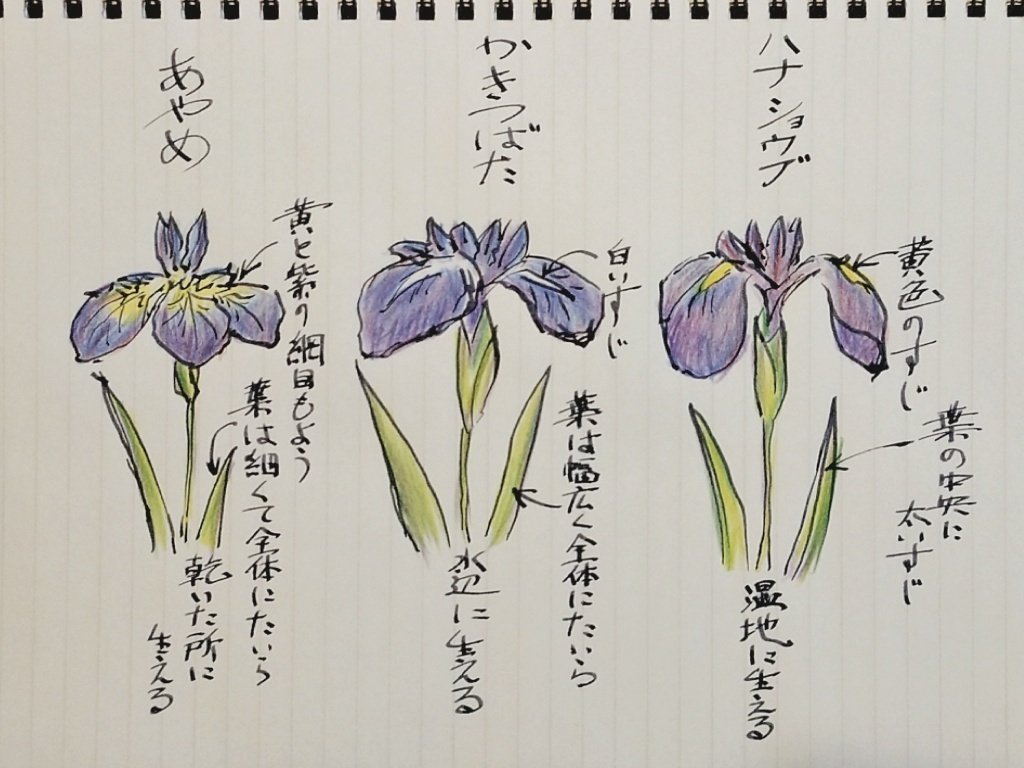 あやめ
黄と紫の網目もよう
葉は細くて全体にたいら
乾いた所に
生える
かきつばた
白いすじ
葉は幅広く全体にたいら
水辺に生える
ハナショウブ
黄色のすじ
葉の中央に
太いすじ
湿地に生える